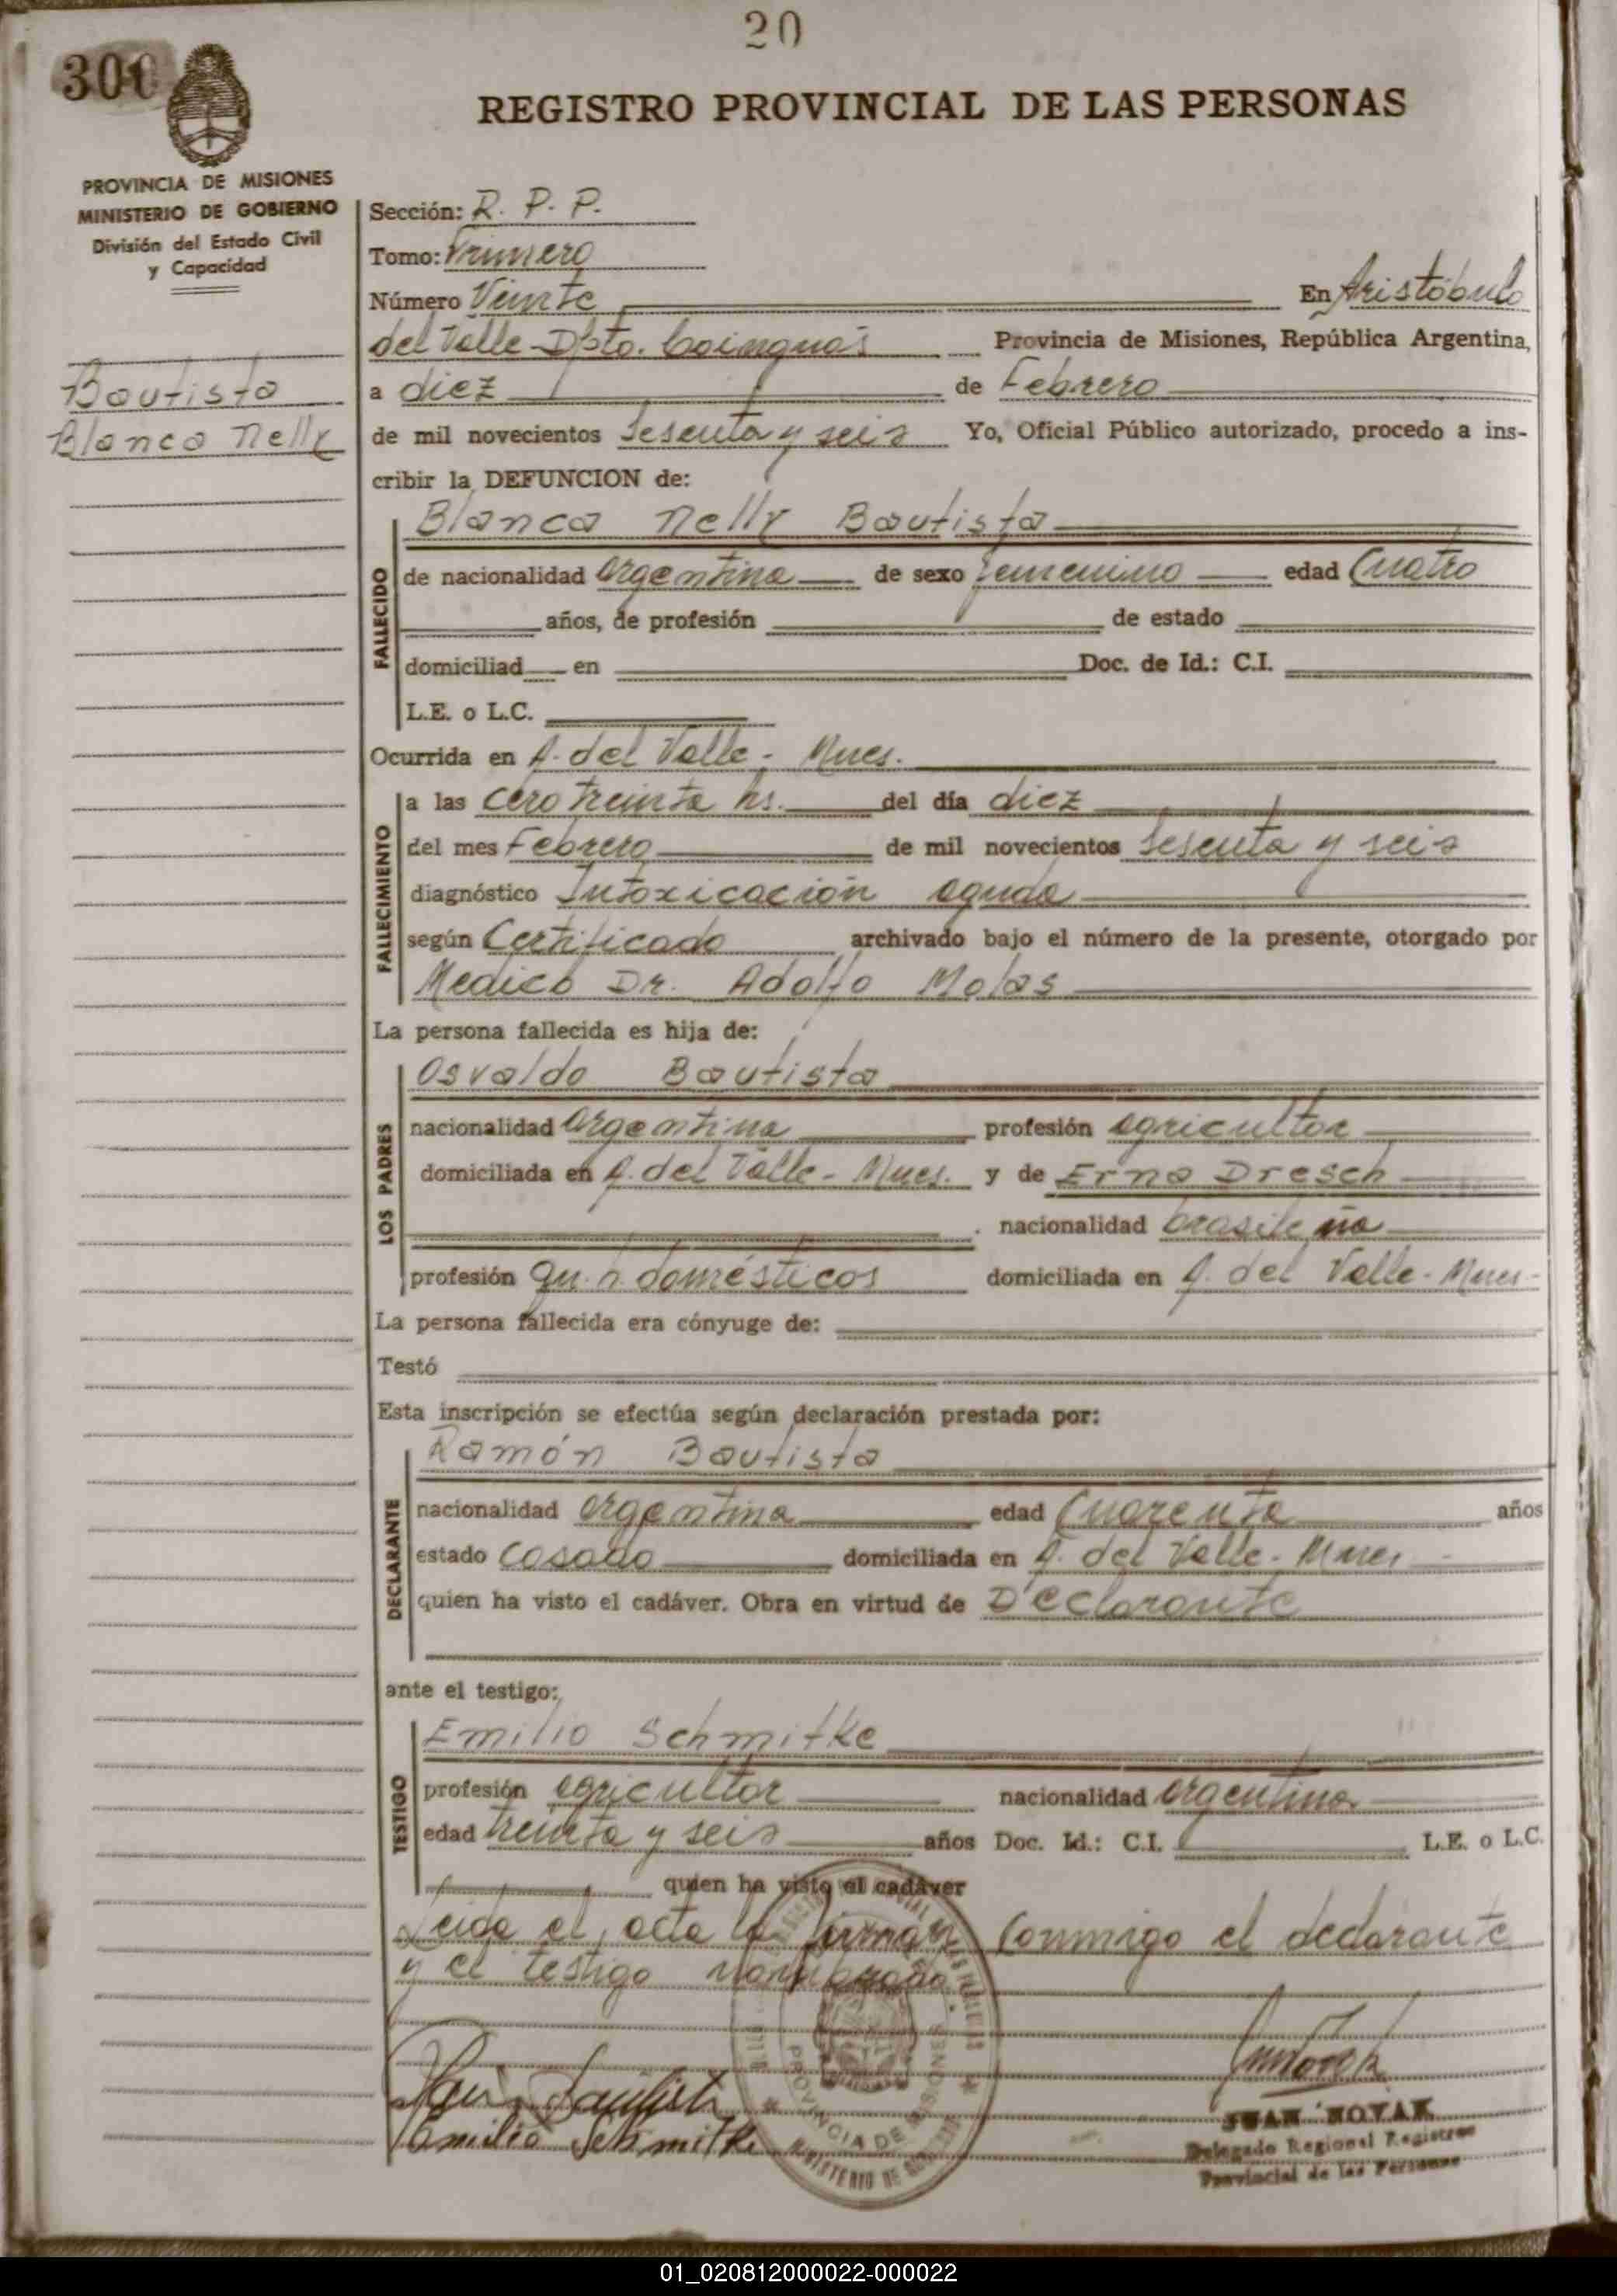 20
300
REGISTRO PROVINCIAL DE LAS PERSONAS
PROVINCIA DE MISIONES
MINISTERIO DE GOBIERNO
División del Estado Civil
y Capacidad
Bautista
Blanca Nelly
Sección: R. P. P.
Tomo: Primero
Número Veinte En Aristóbulo
del Valle - Dpto. Cainguás Provincia de Misiones, República Argentina,
a diez de Febrero
de mil novecientos Sesenta y seis Yo, Oficial Público autorizado, procedo a ins-
cribir la DEFUNCION de:
Blanca Nelly Bautista
FALLECIDO
de nacionalidad argentina de sexo femenino edad Cuatro
años, de profesión de estado
domiciliad en Doc. de Id.: C.I.
L.E. o L.C.
Ocurrida en A. del Valle - Mnes.
FALLECIMIENTO
a las cero treinta hs. del día diez
del mes Febrero de mil novecientos Sesenta y seis
diagnóstico Intoxicación aguda
según Certificado archivado bajo el número de la presente, otorgado por
Medico Dr. Adolfo Molas
La persona fallecida es hija de:
LOS PADRES
Osvaldo Bautista
nacionalidad argentina profesión agricultor
domiciliada en A. del Valle - Mnes. y de Erna Dresch
nacionalidad brasileña
profesión qu. h. domésticos domiciliada en A. del Valle - Mnes.
La persona fallecida era cónyuge de:
Testó
Esta inscripción se efectúa según declaración prestada por:
DECLARANTE
Ramón Bautista
nacionalidad argentina edad Cuarenta años
estado casado domiciliada en A. del Valle - Mnes
quien ha visto el cadáver. Obra en virtud de Declarante
ante el testigo:
TESTIGO
Emilio Schmitke
profesión agricultor nacionalidad argentina
edad treinta y seis años Doc. Id.: C.I. L.E. o L.C.
quien ha visto el cadáver
Leida el acta la firman conmigo el declarante
y el testigo nombrado.
PROVINCIA DE MISIONES
MINISTERIO DE GOBIERNO
Bautista
Emilio Schmitke
JUAN NOVAK
Delegado Regional Registro
Provincial de las Personas
01_020812000022-000022